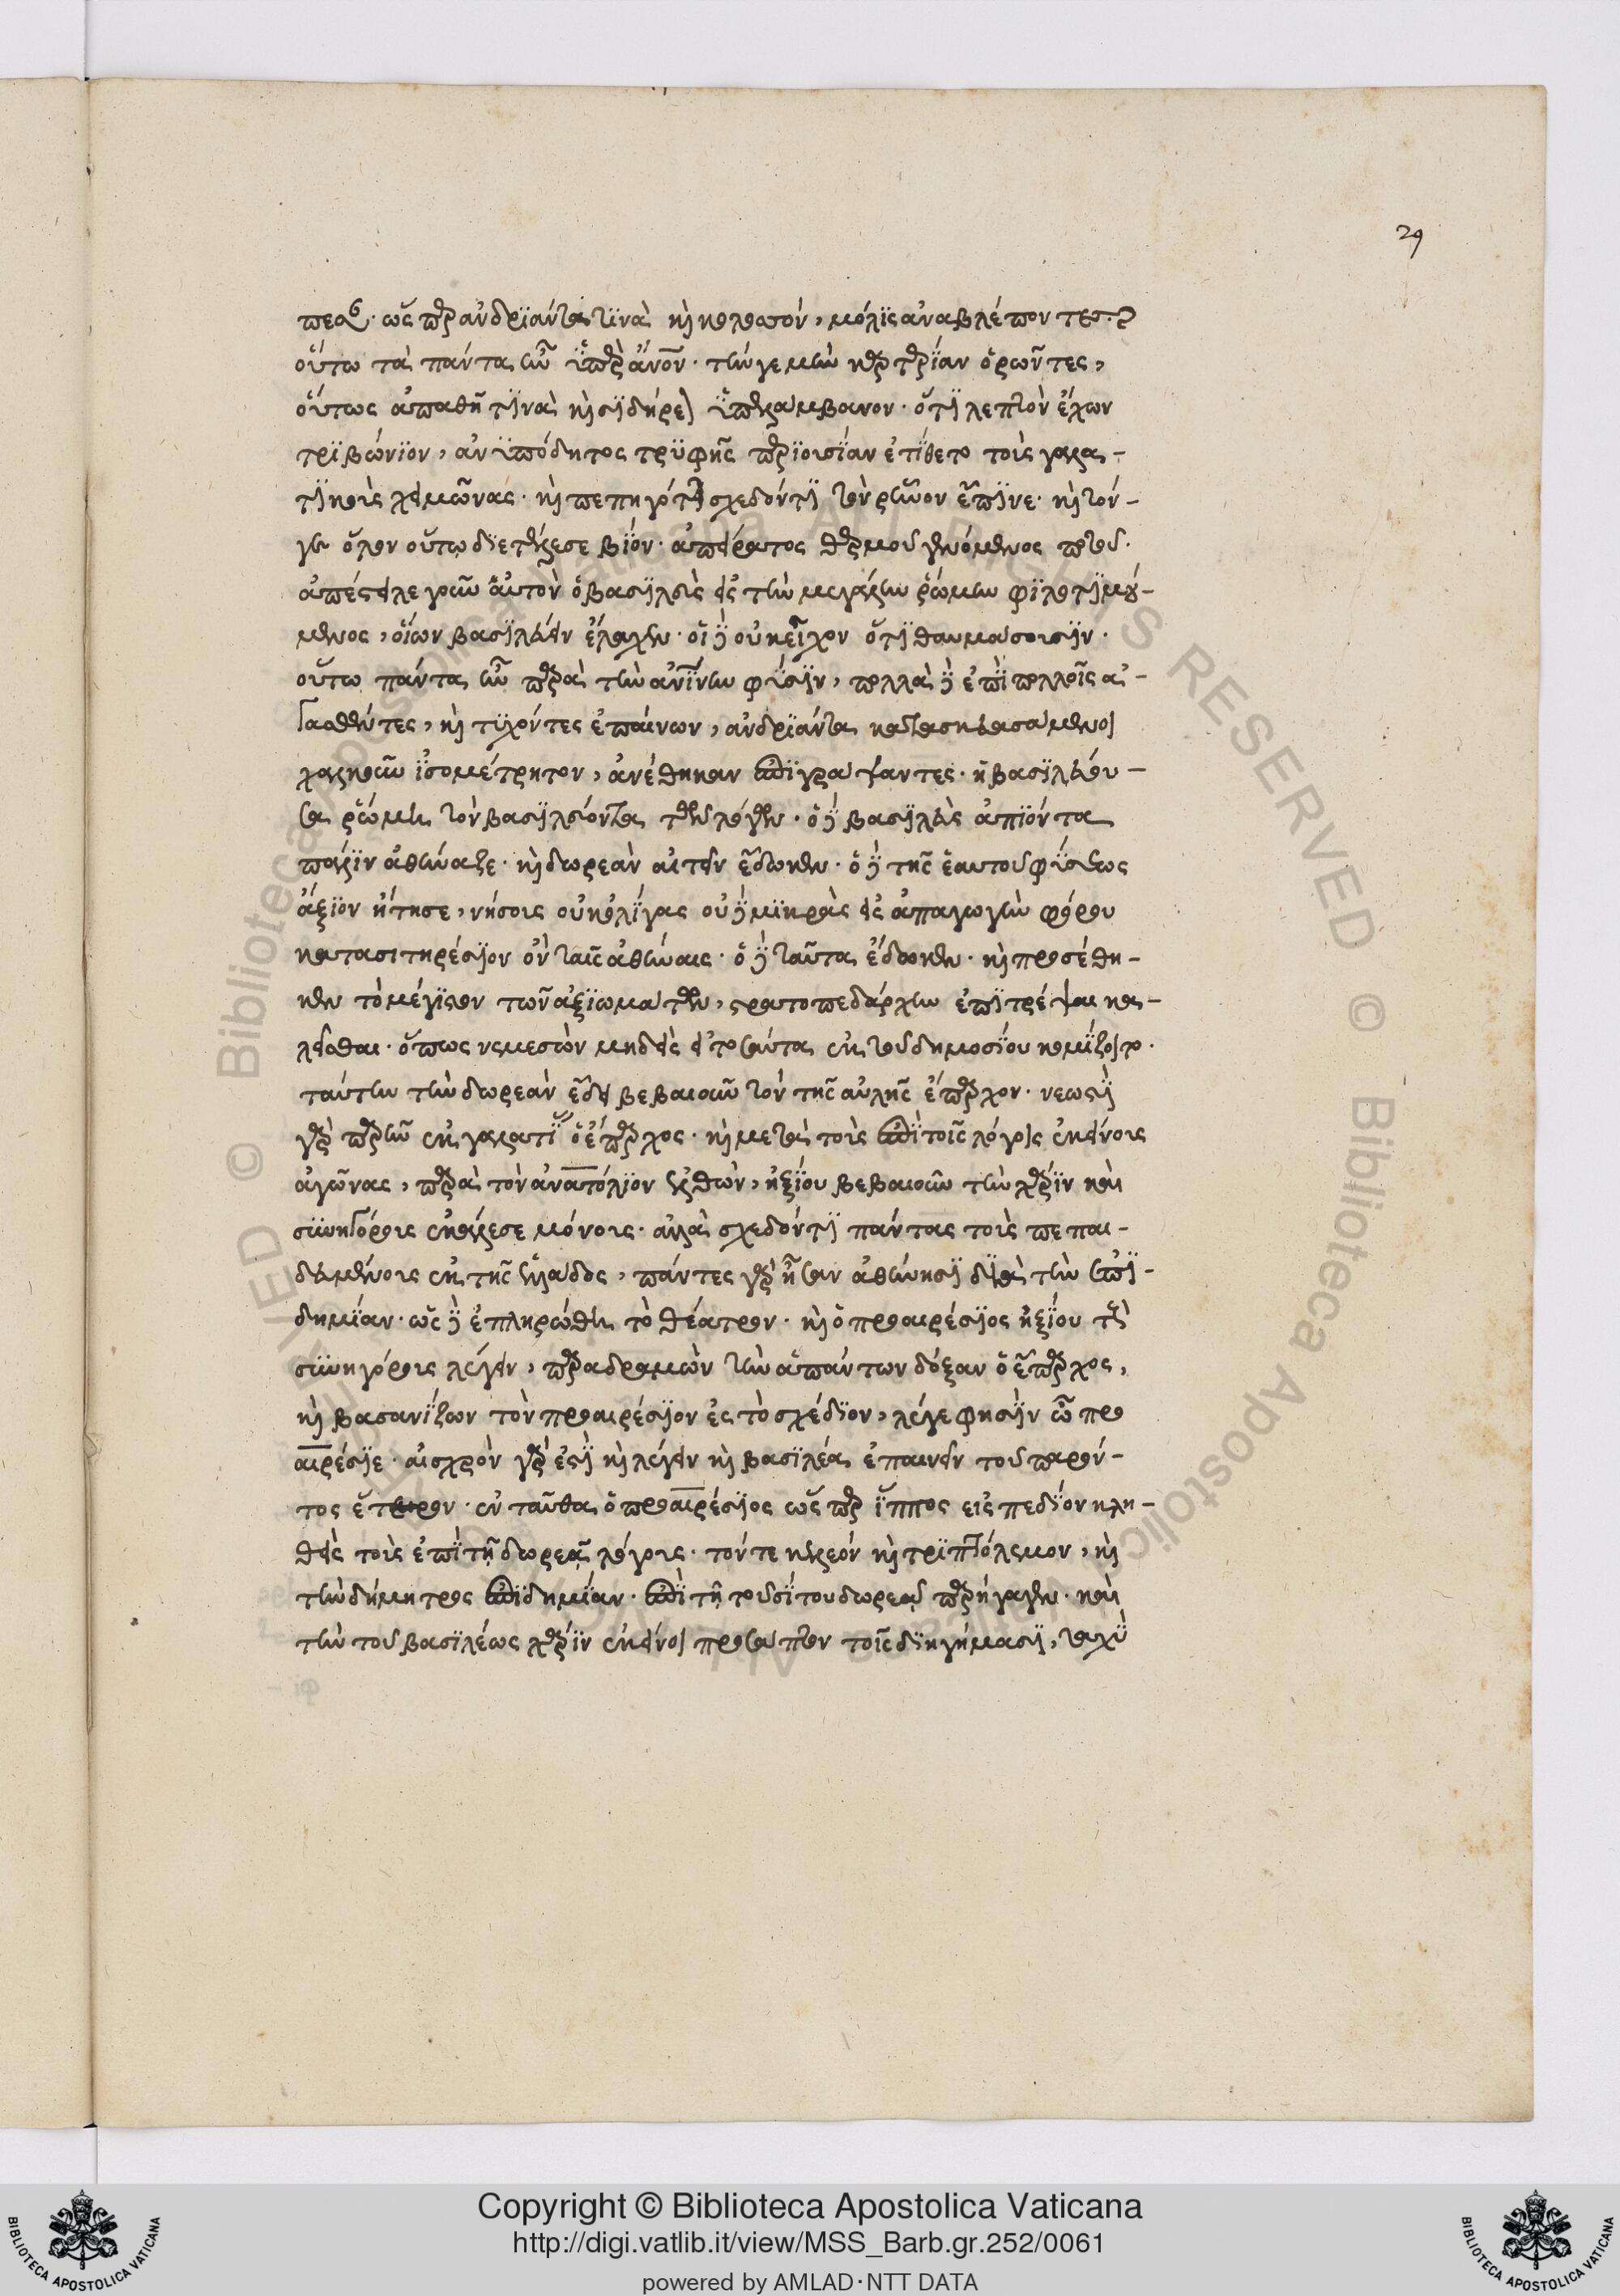 πεσ· ὥσπερ ἀνδριάντα τινὰ καὶ κολοσσόν, μόλις ἀναβλέποντες·
οὕτω τὰ πάντα ἦν ὑπὲρ ἄνον. τήν γε μὴν καρτερίαν ὁρῶντες,
οὕτως ἀπαθῆ τινὰ καὶ σιδήρεον ὑπελάμβανον. ὅτι λεπτὸν ἔχων
τριβώνιον, ἀνυπόδητος τρυφῆς περιουσίαν ἐτίθετο τοὺς γαλα-
τικοὺς χειμῶνας. καὶ πεπηγότα σχεδόν τι τὸν ῥῆνον ἔπινε. καὶ τόν-
γε ὅλον οὕτω διετέλεσε βίον. ἀπείρατος θερμοῦ γενόμενος ποτοῦ.
ἀπέστειλε γοῦν αὐτὸν ὁ βασιλεὺς εἰς τὴν μεγάλην ῥώμην φιλοτιμού-
μενος, οἵων βασιλεύειν ἔλαχεν. οἱ δὲ οὐκ εἶχον ὅτι θαυμάσουσιν.
οὕτω πάντα ἦν παρὰ τὴν ἀνίνην φύσιν, πολλὰ δὲ ἐπὶ πολλοῖς ἀ-
γασθέντες, καὶ τυχόντες ἐπαίνων, ἀνδριάντα κατασκευασάμενοι
χαλκοῦν ἰσομέτρητον, ἀνέθηκαν ἐπιγράψαντες. ἡ βασιλεύου-
σα ῥώμη τὸν βασιλεύοντα τῶν λόγων. ὁ δὲ βασιλεὺς ἀπιόντα
πάλιν ἀθήναζε. καὶ δωρεὰν αἰτεῖν ἔδωκεν. ὁ δὲ τῆς ἑαυτοῦ φύσεως
ἄξιον ᾔτησε, νήσους οὐκ ὀλίγας οὐδὲ μικρὰς εἰς ἀπαγωγὴν φόρου
κατασιτηρέσιον ἐν ταῖς ἀθήναις. ὁ δὲ ταῦτα ἔδωκεν. καὶ προσέθη-
κεν τὸ μέγιστον τῶν ἀξιωμάτων, στρατοπεδάρχην ἐπιτρέψαι κα-
λεῖσθαι. ὅπως νεμεσῶν μηδεὶς εἰ τοσαῦτα ἐκ τοῦ δημοσίου κομίζοιτο.
ταύτην τὴν δωρεὰν ἔδει βεβαιοῦν τὸν τῆς αὐλῆς ἔπαρχον. νεωστὶ
γὰρ παρῆν ἐκ γαλατίας ὁ ἔπαρχος. καὶ μετὰ τοὺς ἐπὶ τοῖς λόγοις ἐκείνοις
ἀγῶνας, παρὰ τὸν ἀνατόλιον ἐλθών, ἠξίου βεβαιοῦν τὴν χάριν καὶ
συνηγόρους ἐκάλεσε μόνους. ἀλλὰ σχεδόν τι πάντας τοὺς πεπαι-
δευμένους ἐκ τῆς ἑλλάδος, πάντες γὰρ ἦσαν ἀθήνησι διὰ τὴν ἐπι-
δημίαν. ὡς δὲ ἐπληρώθη τὸ θέατρον. καὶ ὁ προαιρέσιος ἠξίου τοὺς
συνηγόρους λέγειν, παραδραμὼν τὴν ἁπάντων δόξαν ὁ ἔπαρχος,
καὶ βασανίζων τὸν προαιρέσιον ἐς τὸ σχέδιον, λέγε φησὶν ὦ προ
αιρέσιε. αἰσχρὸν γὰρ ἐστὶ καὶ λέγειν καὶ βασιλέα ἐπαινεῖν τοῦ παρόν-
τος ἕτερον. ἐνταῦθα ὁ προαιρέσιος ὥσπερ ἵππος εἰς πεδίον κλη-
θεὶς τοὺς ἐπὶ τῇ δωρεᾷ λόγους. τόν τε κελεὸν καὶ τριπτόλεμον, καὶ
τὴν δήμητρος ἐπιδημίαν. ἐπὶ τῇ τοῦ σίτου δωρεᾷ παρήγαγεν. καὶ
τὴν τοῦ βασιλέως χάριν ἐκείνοις προσάπτων τοῖς διηγήμασι, ταχὺ
29
Copyright © Biblioteca Apostolica Vaticana
http://digi.vatlib.it/view/MSS_Barb.gr.252/0061
powered by AMLAD·NTT DATA